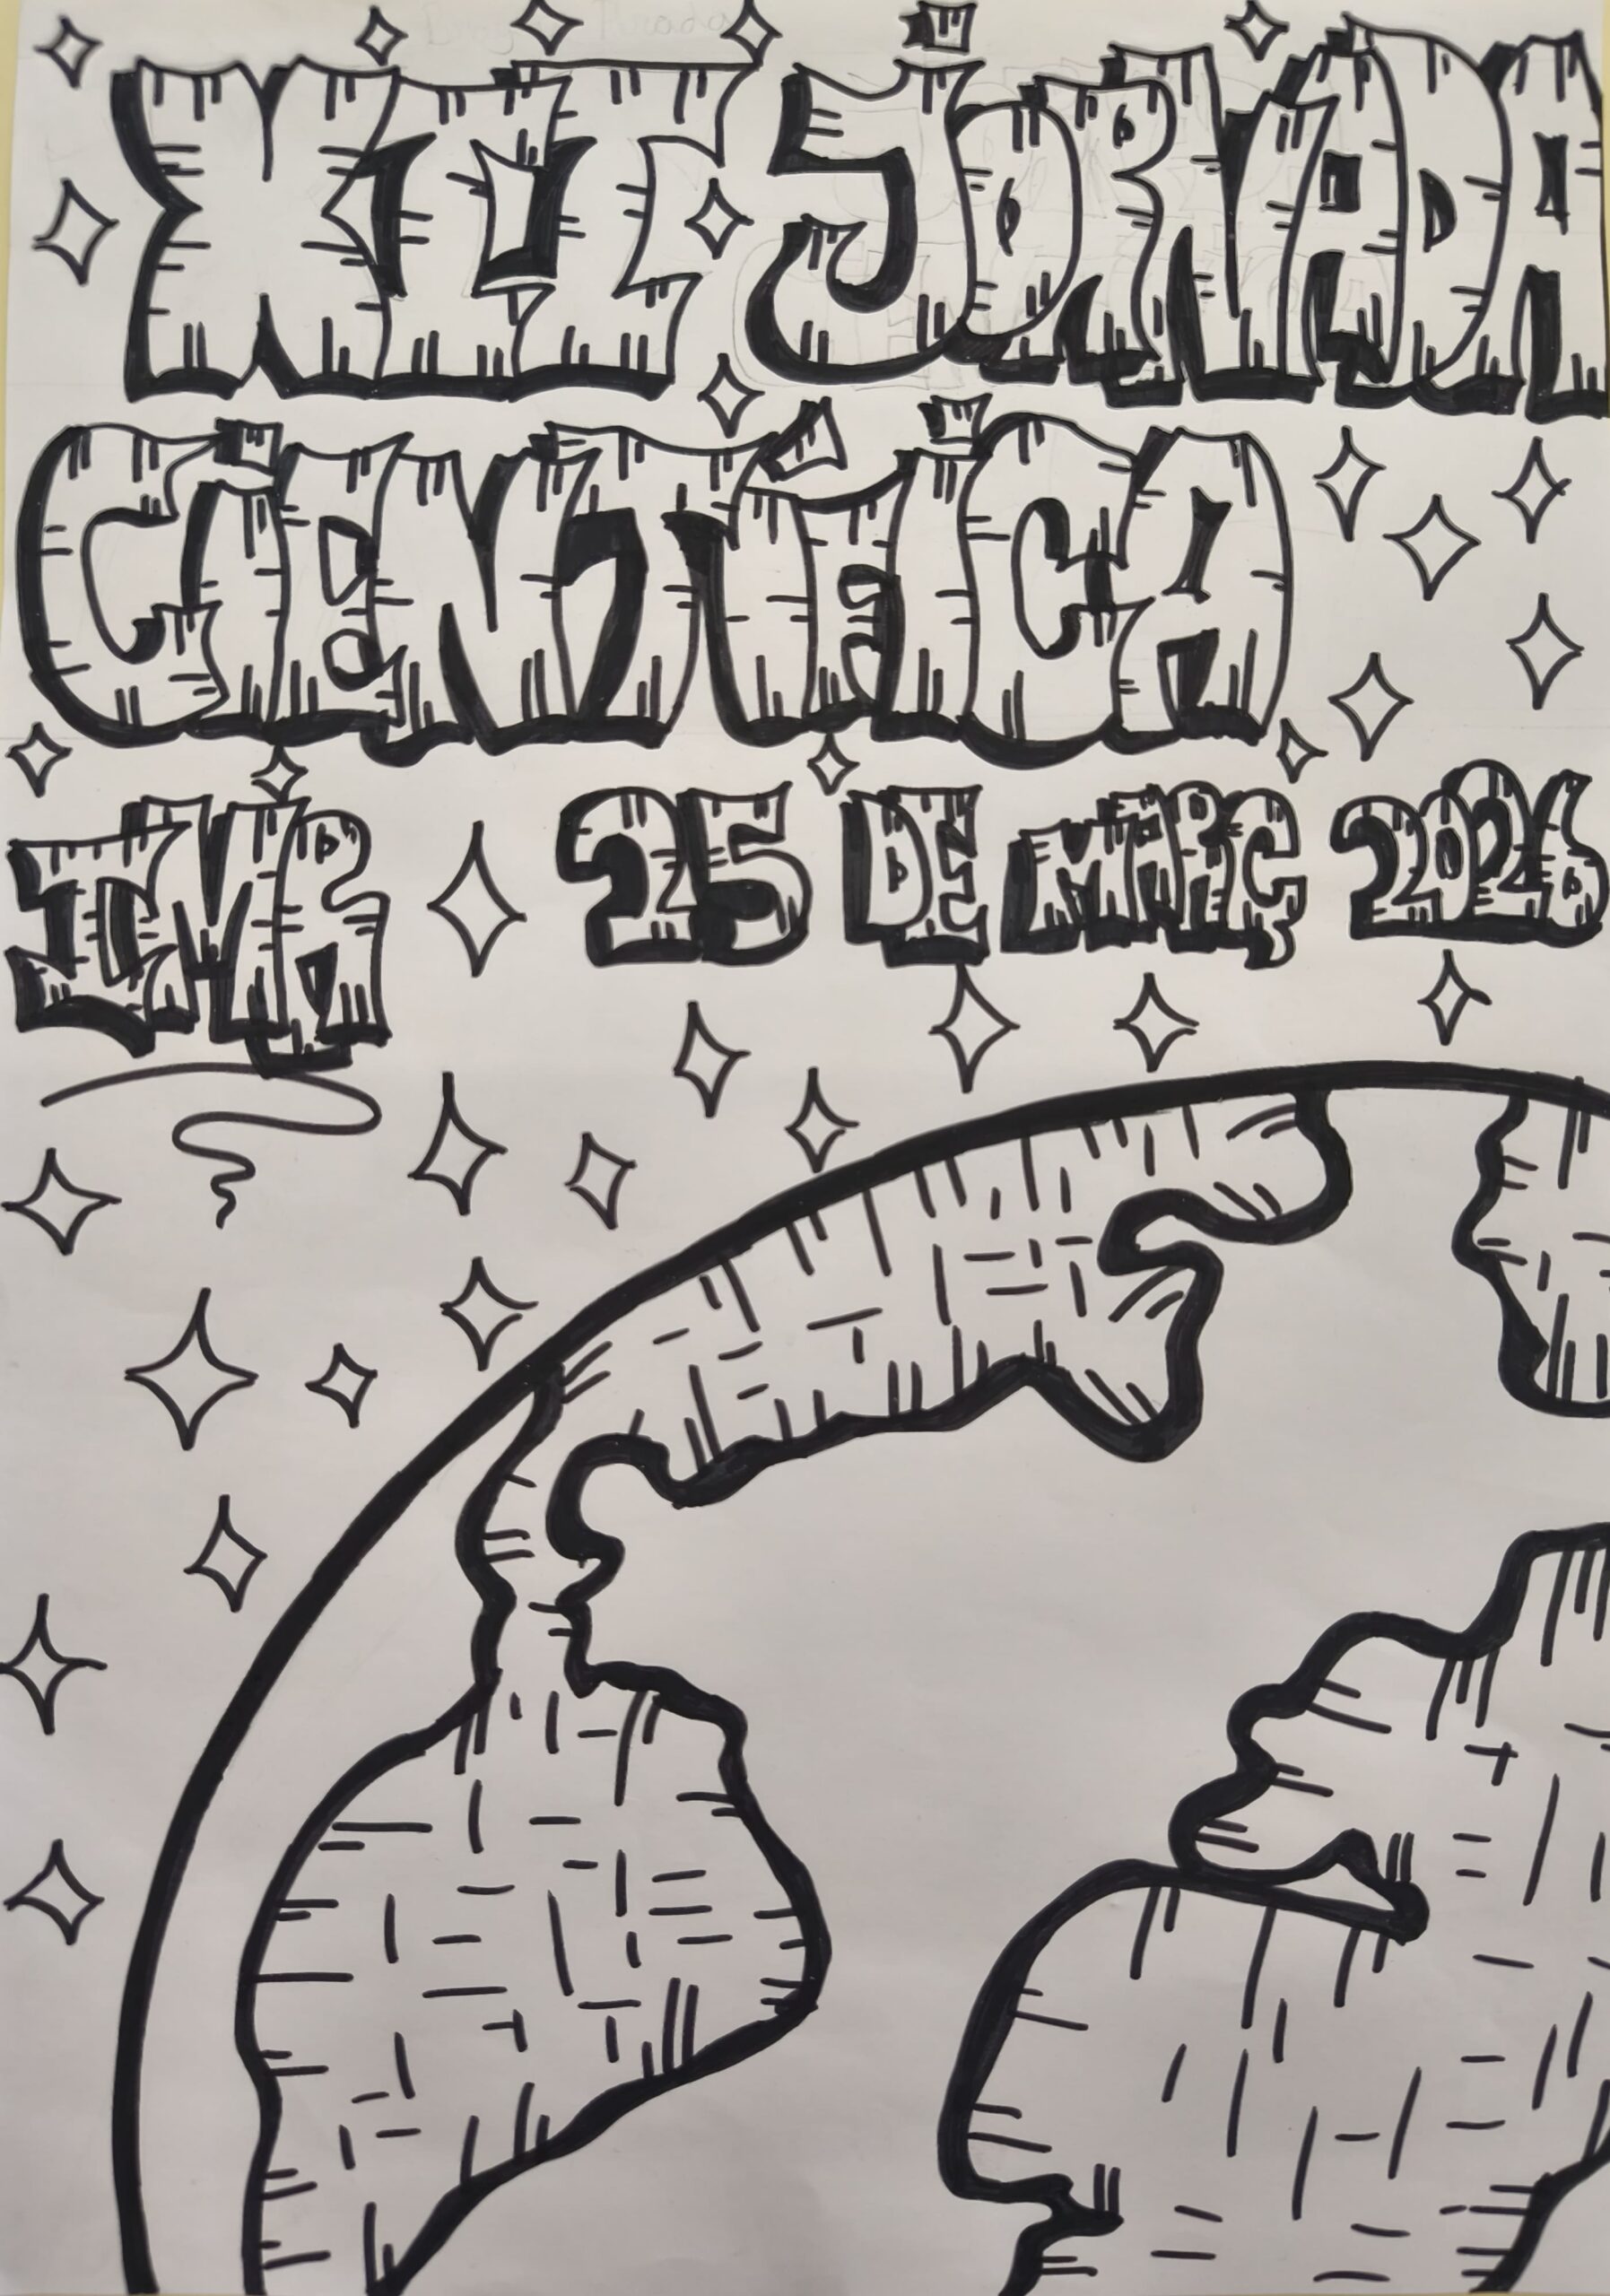 XII JORNADA
CIENTÍFICA
IMR 25 DE MARÇ 2026